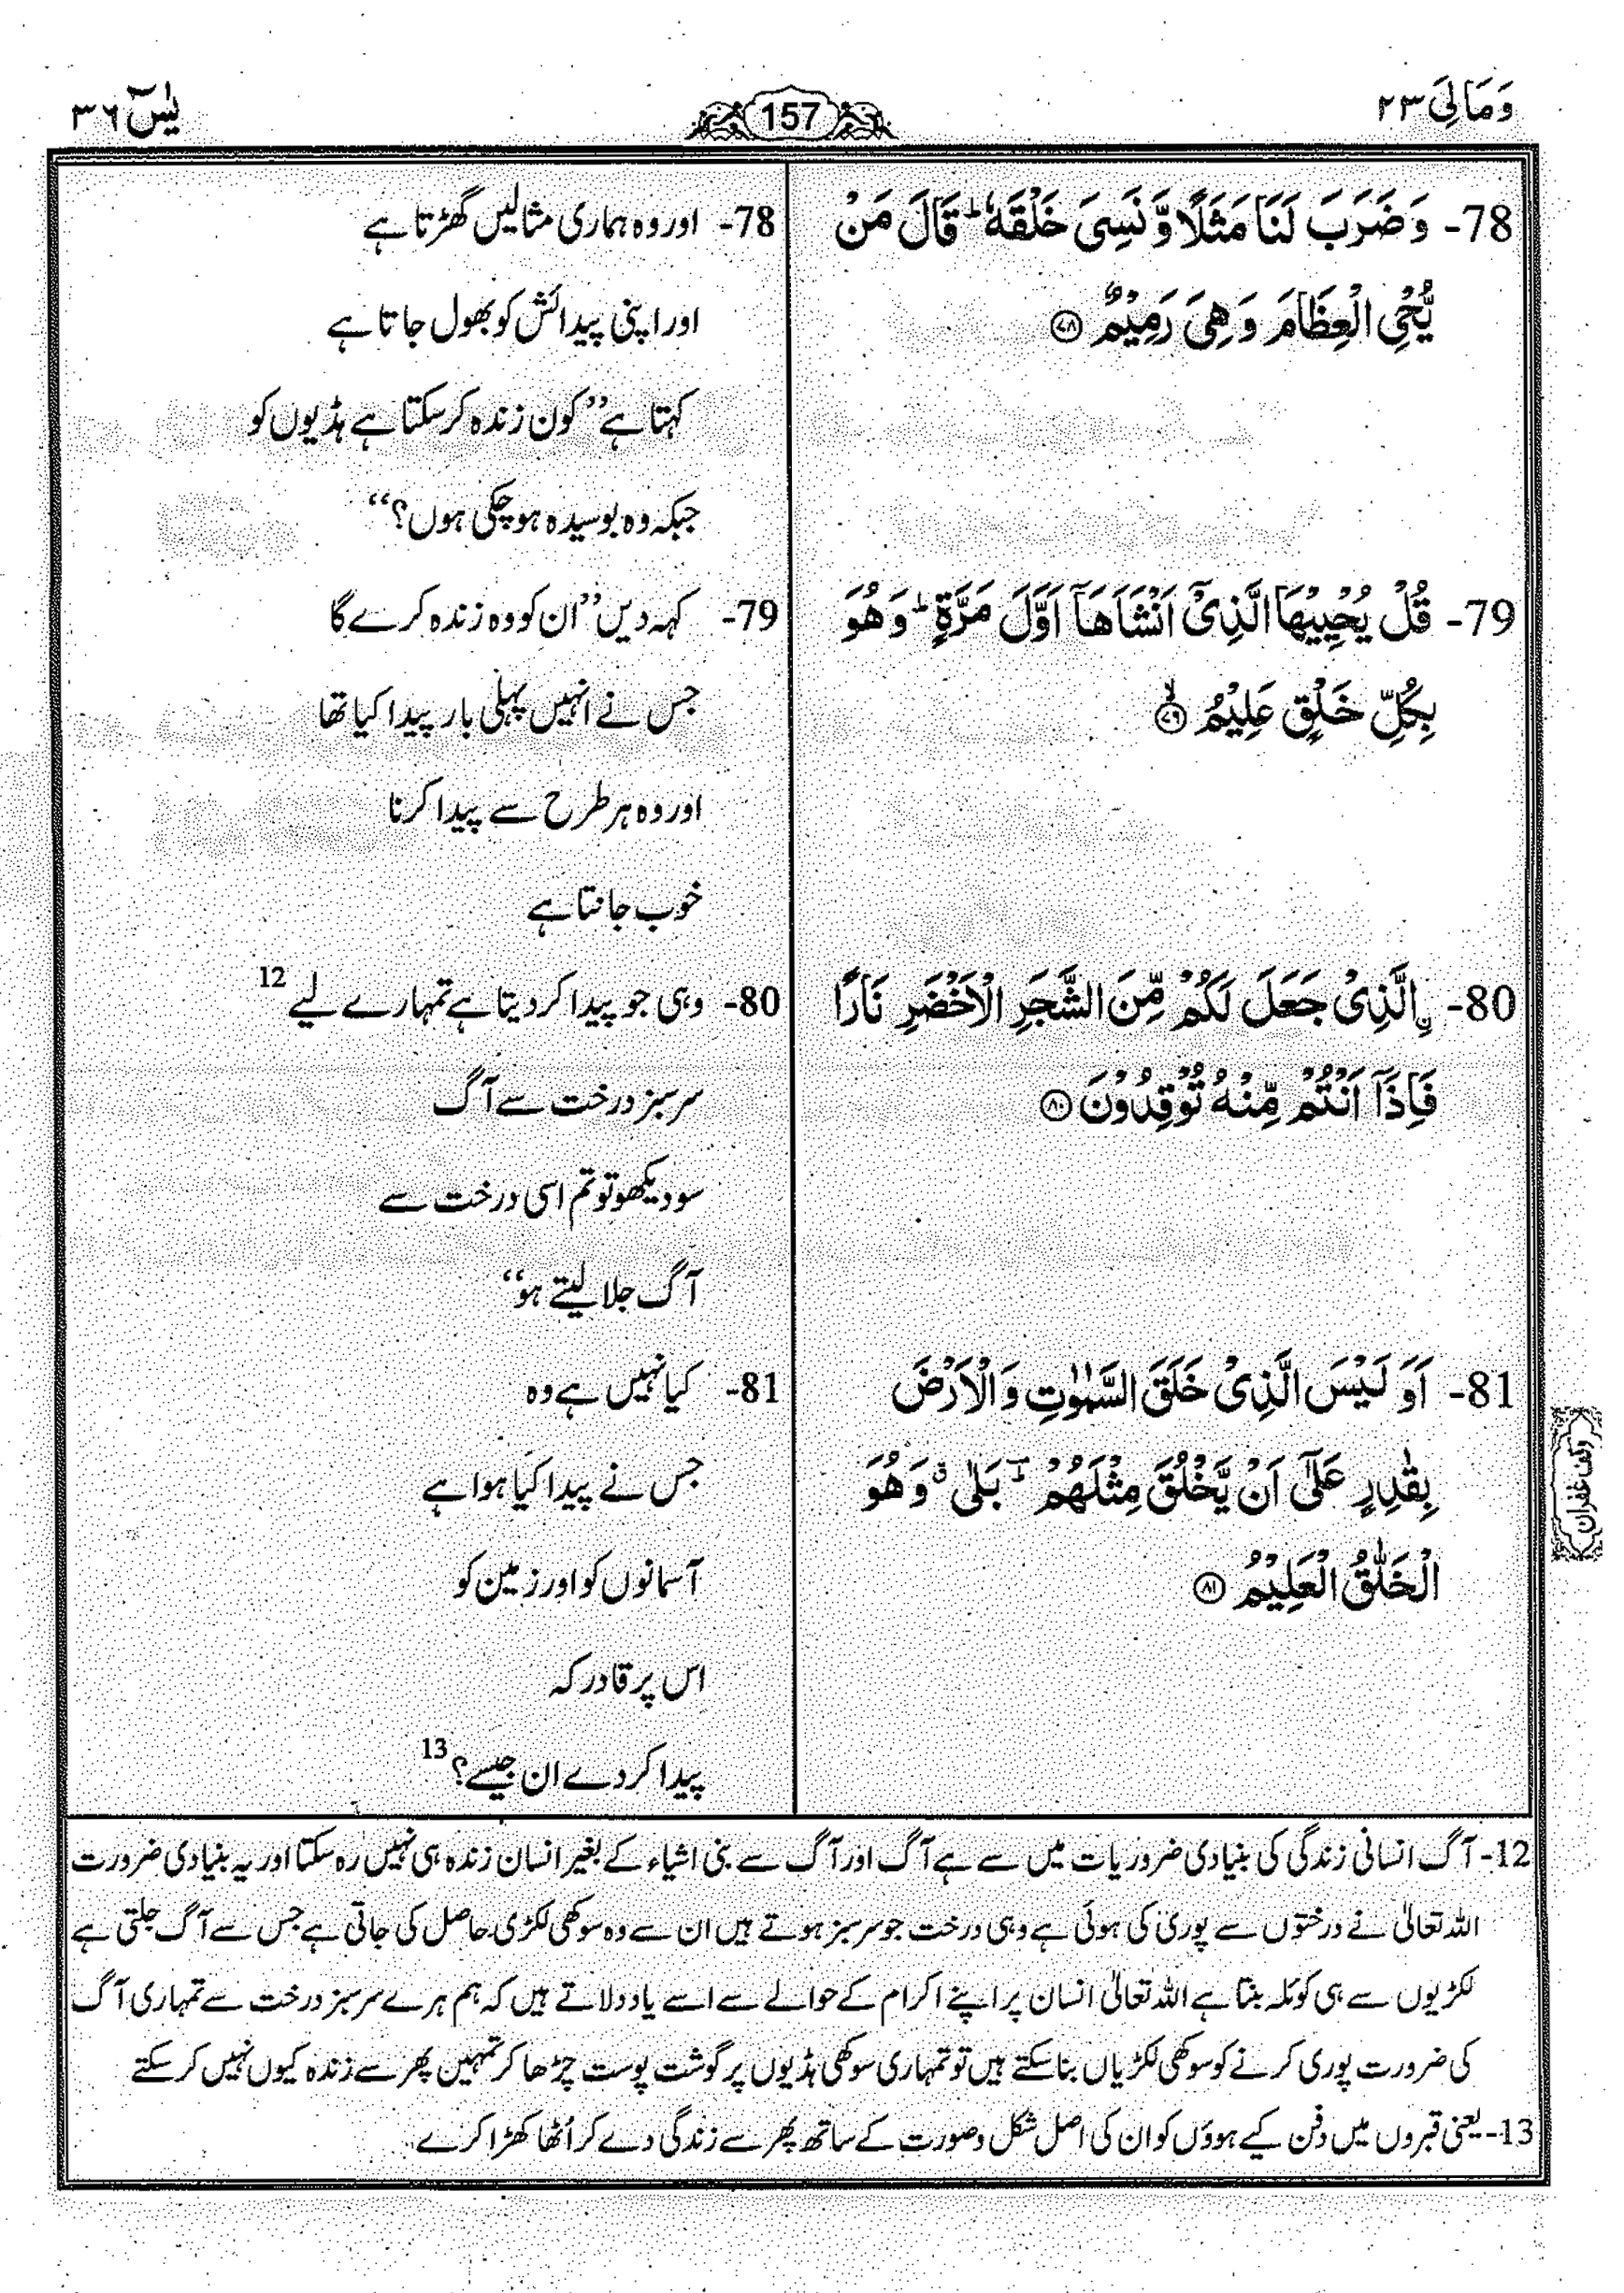 وَمَالِيَ ٢٣
157
يٰسٓ ٣٦
78- وَضَرَبَ لَنَا مَثَلًا وَّنَسِيَ خَلْقَهٗ ؕ قَالَ مَنْ
يُّحْيِ الْعِظَامَ وَهِيَ رَمِيْمٌ ۝۷۸
79- قُلْ يُحْيِيْهَا الَّذِيْۤ اَنْشَاَهَاۤ اَوَّلَ مَرَّةٍ ؕ وَهُوَ
بِكُلِّ خَلْقٍ عَلِيْمُ ۙ۝۷۹
80- ۨالَّذِيْ جَعَلَ لَكُمْ مِّنَ الشَّجَرِ الْاَخْضَرِ نَارًا
فَاِذَاۤ اَنْتُمْ مِّنْهُ تُوْقِدُوْنَ ۝۸۰
81- اَوَ لَيْسَ الَّذِيْ خَلَقَ السَّمٰوٰتِ وَالْاَرْضَ
بِقٰدِرٍ عَلٰۤى اَنْ يَّخْلُقَ مِثْلَهُمْ ؕ بَلٰى ۗ وَهُوَ
الْخَلّٰقُ الْعَلِيْمُ ۝۸۱
وقف غفران
78- اور وہ ہماری مثالیں گھڑتا ہے
اور اپنی پیدائش کو بھول جاتا ہے
کہتا ہے ’’کون زندہ کر سکتا ہے ہڈیوں کو
جبکہ وہ بوسیدہ ہو چکی ہوں؟‘‘
79- کہہ دیں ’’ان کو وہ زندہ کرے گا
جس نے انہیں پہلی بار پیدا کیا تھا
اور وہ ہر طرح سے پیدا کرنا
خوب جانتا ہے
80- وہی جو پیدا کر دیتا ہے تمہارے لیے 12
سرسبز درخت سے آگ
سو دیکھو تو تم اسی درخت سے
آگ جلا لیتے ہو‘‘
81- کیا نہیں ہے وہ
جس نے پیدا کیا ہوا ہے
آسمانوں کو اور زمین کو
اس پر قادر کہ
پیدا کر دے ان جیسے؟ 13
12- آگ انسانی زندگی کی بنیادی ضروریات میں سے ہے آگ اور آگ سے بنی اشیاء کے بغیر انسان زندہ ہی نہیں رہ سکتا اور یہ بنیادی ضرورت
اللہ تعالیٰ نے درختوں سے پوری کی ہوئی ہے وہی درخت جو سرسبز ہوتے ہیں ان سے وہ سوکھی لکڑی حاصل کی جاتی ہے جس سے آگ جلتی ہے
لکڑیوں سے ہی کوئلہ بنتا ہے اللہ تعالیٰ انسان پر اپنے اکرام کے حوالے سے اسے یاد دلاتے ہیں کہ ہم ہرے سرسبز درخت سے تمہاری آگ
کی ضرورت پوری کرنے کو سوکھی لکڑیاں بنا سکتے ہیں تو تمہاری سوکھی ہڈیوں پر گوشت پوست چڑھا کر تمہیں پھر سے زندہ کیوں نہیں کر سکتے
13- یعنی قبروں میں دفن کیے ہوؤں کو ان کی اصل شکل و صورت کے ساتھ پھر سے زندگی دے کر اُٹھا کھڑا کرے